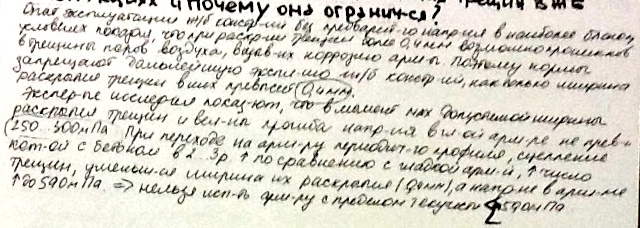 и почему она огранич-ся?
Опыт эксплуатации ж/б констр-ий без предварит-го напр-ия в наиболее благоп.
условиях показал, что при раскр-ии трещин более 0,4мм возможно проникнов.
в трещины паров воздуха, вызыв-их коррозию арм-ры. Поэтому нормы
запрещают дальнейшую экспл-ию ж/б констр-ий, как только ширина
раскрытия трещин в них превысит (0,4мм).
Экспер-ые исследов-ия показ-ют, что в момент мах допустимой ширины
раскрытия трещин и вел-ны прогиба напр-ия в гл-ой арм-ре не прев-т
(250..300мПа. При переходе на арм-ру периодич-го профиля, сцепление
кот-ой с бетоном в 2..3р ↑ по сравнению с гладкой арм-й, ↑ число
трещин, уменьш-ся ширина их раскрытия (0,4мм), а напр-ие в арм-ре
↑ до 590мПа. => нельзя исп-ть арм-ру с пределом текучести 590мПа